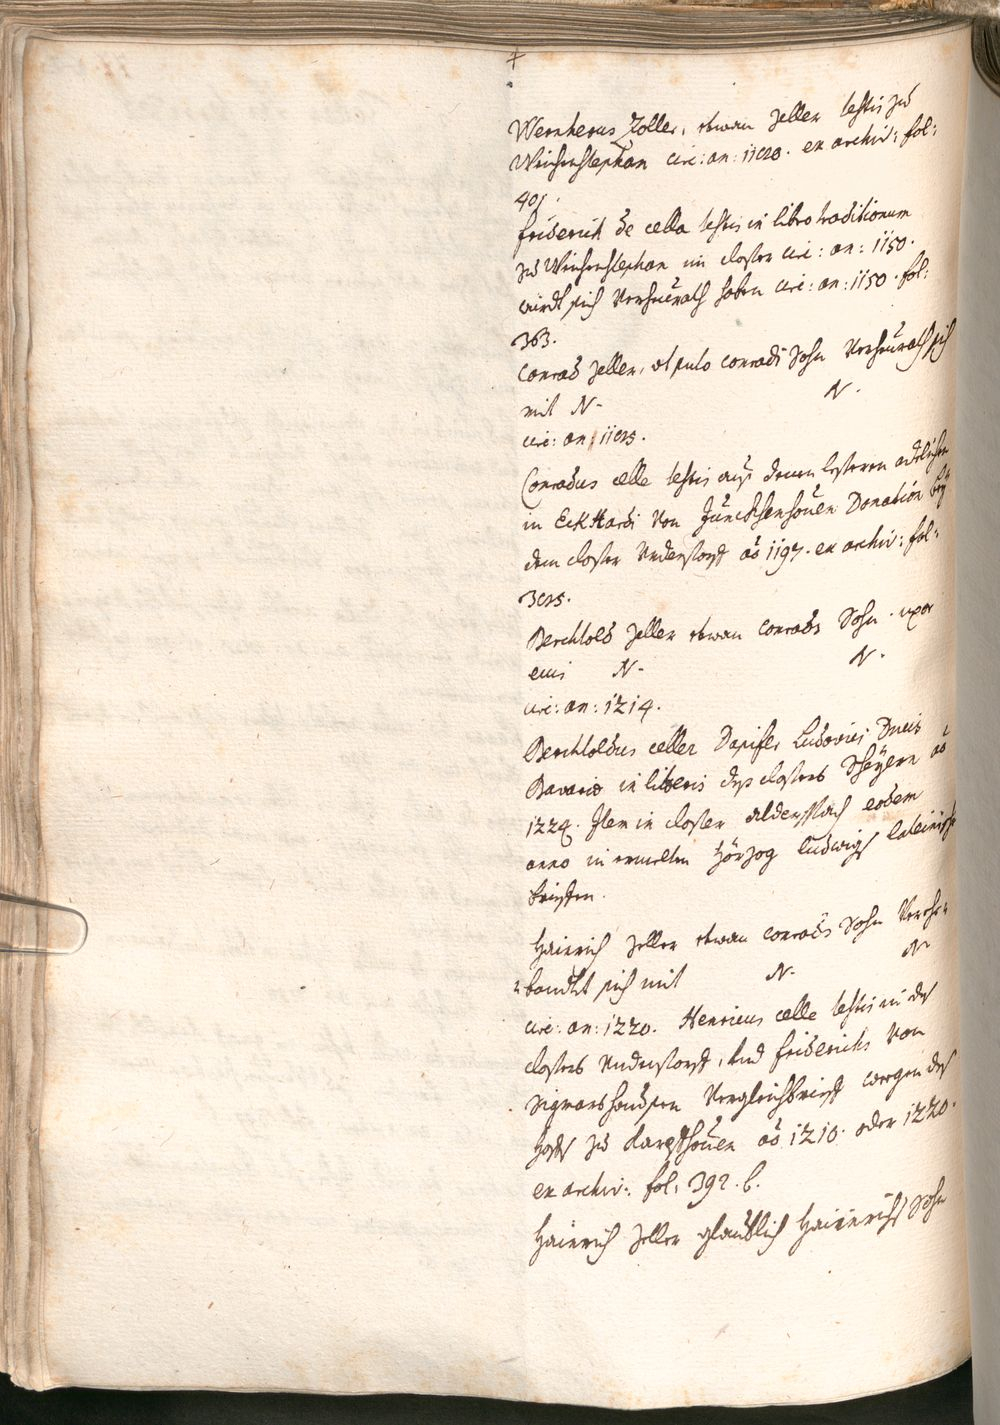 Wernherus Zoller, etwan Zeller testis zu
Weichenstephan circ: an: 1120. ex archiv: fol:
40.
friderich de cella testis in libro traditionum
zu Weichenstephan im closter circ: an: 1150.
wirdt sich Verheürath haben circ: an: 1150. fol:
363.
Conrad Zeller, ut puto Conradi Sohn Verheürath sich
mit N. N.
circ: an: 1175.
Conradus celle testis auß denen besseren adelichen
in EckHardi Von Jünckhenhouen Donation bey
dem closter Understorff aõ 1197. ex archiv: fol:
375.
Berchtold Zeller etwan Conrads Sohn. uxor
eius N. N.
circ: an: 1214.
Berchtoldus celler Dapifer Ludovici Ducis
Bavariæ in literis deß closters Scheyern aõ
1224. Item in closter alderspach eodem
anno in ermelten Hörzog Ludwigs lateinische
brieffen.
Hainrich Zeller etwan Conrads Sohn Verehe=
=landht sich mit N. N.
circ: an: 1220. Henricus celle testis in des
closters Understorff, und friderichs Von
Sigmarshausen Vergleichbrieff wegen des
Hoffs zu Karpfhouen aõ 1210. oder 1220.
ex archiv: fol: 392. b.
Hainrich Zeller glaublich Hainrichs Sohn